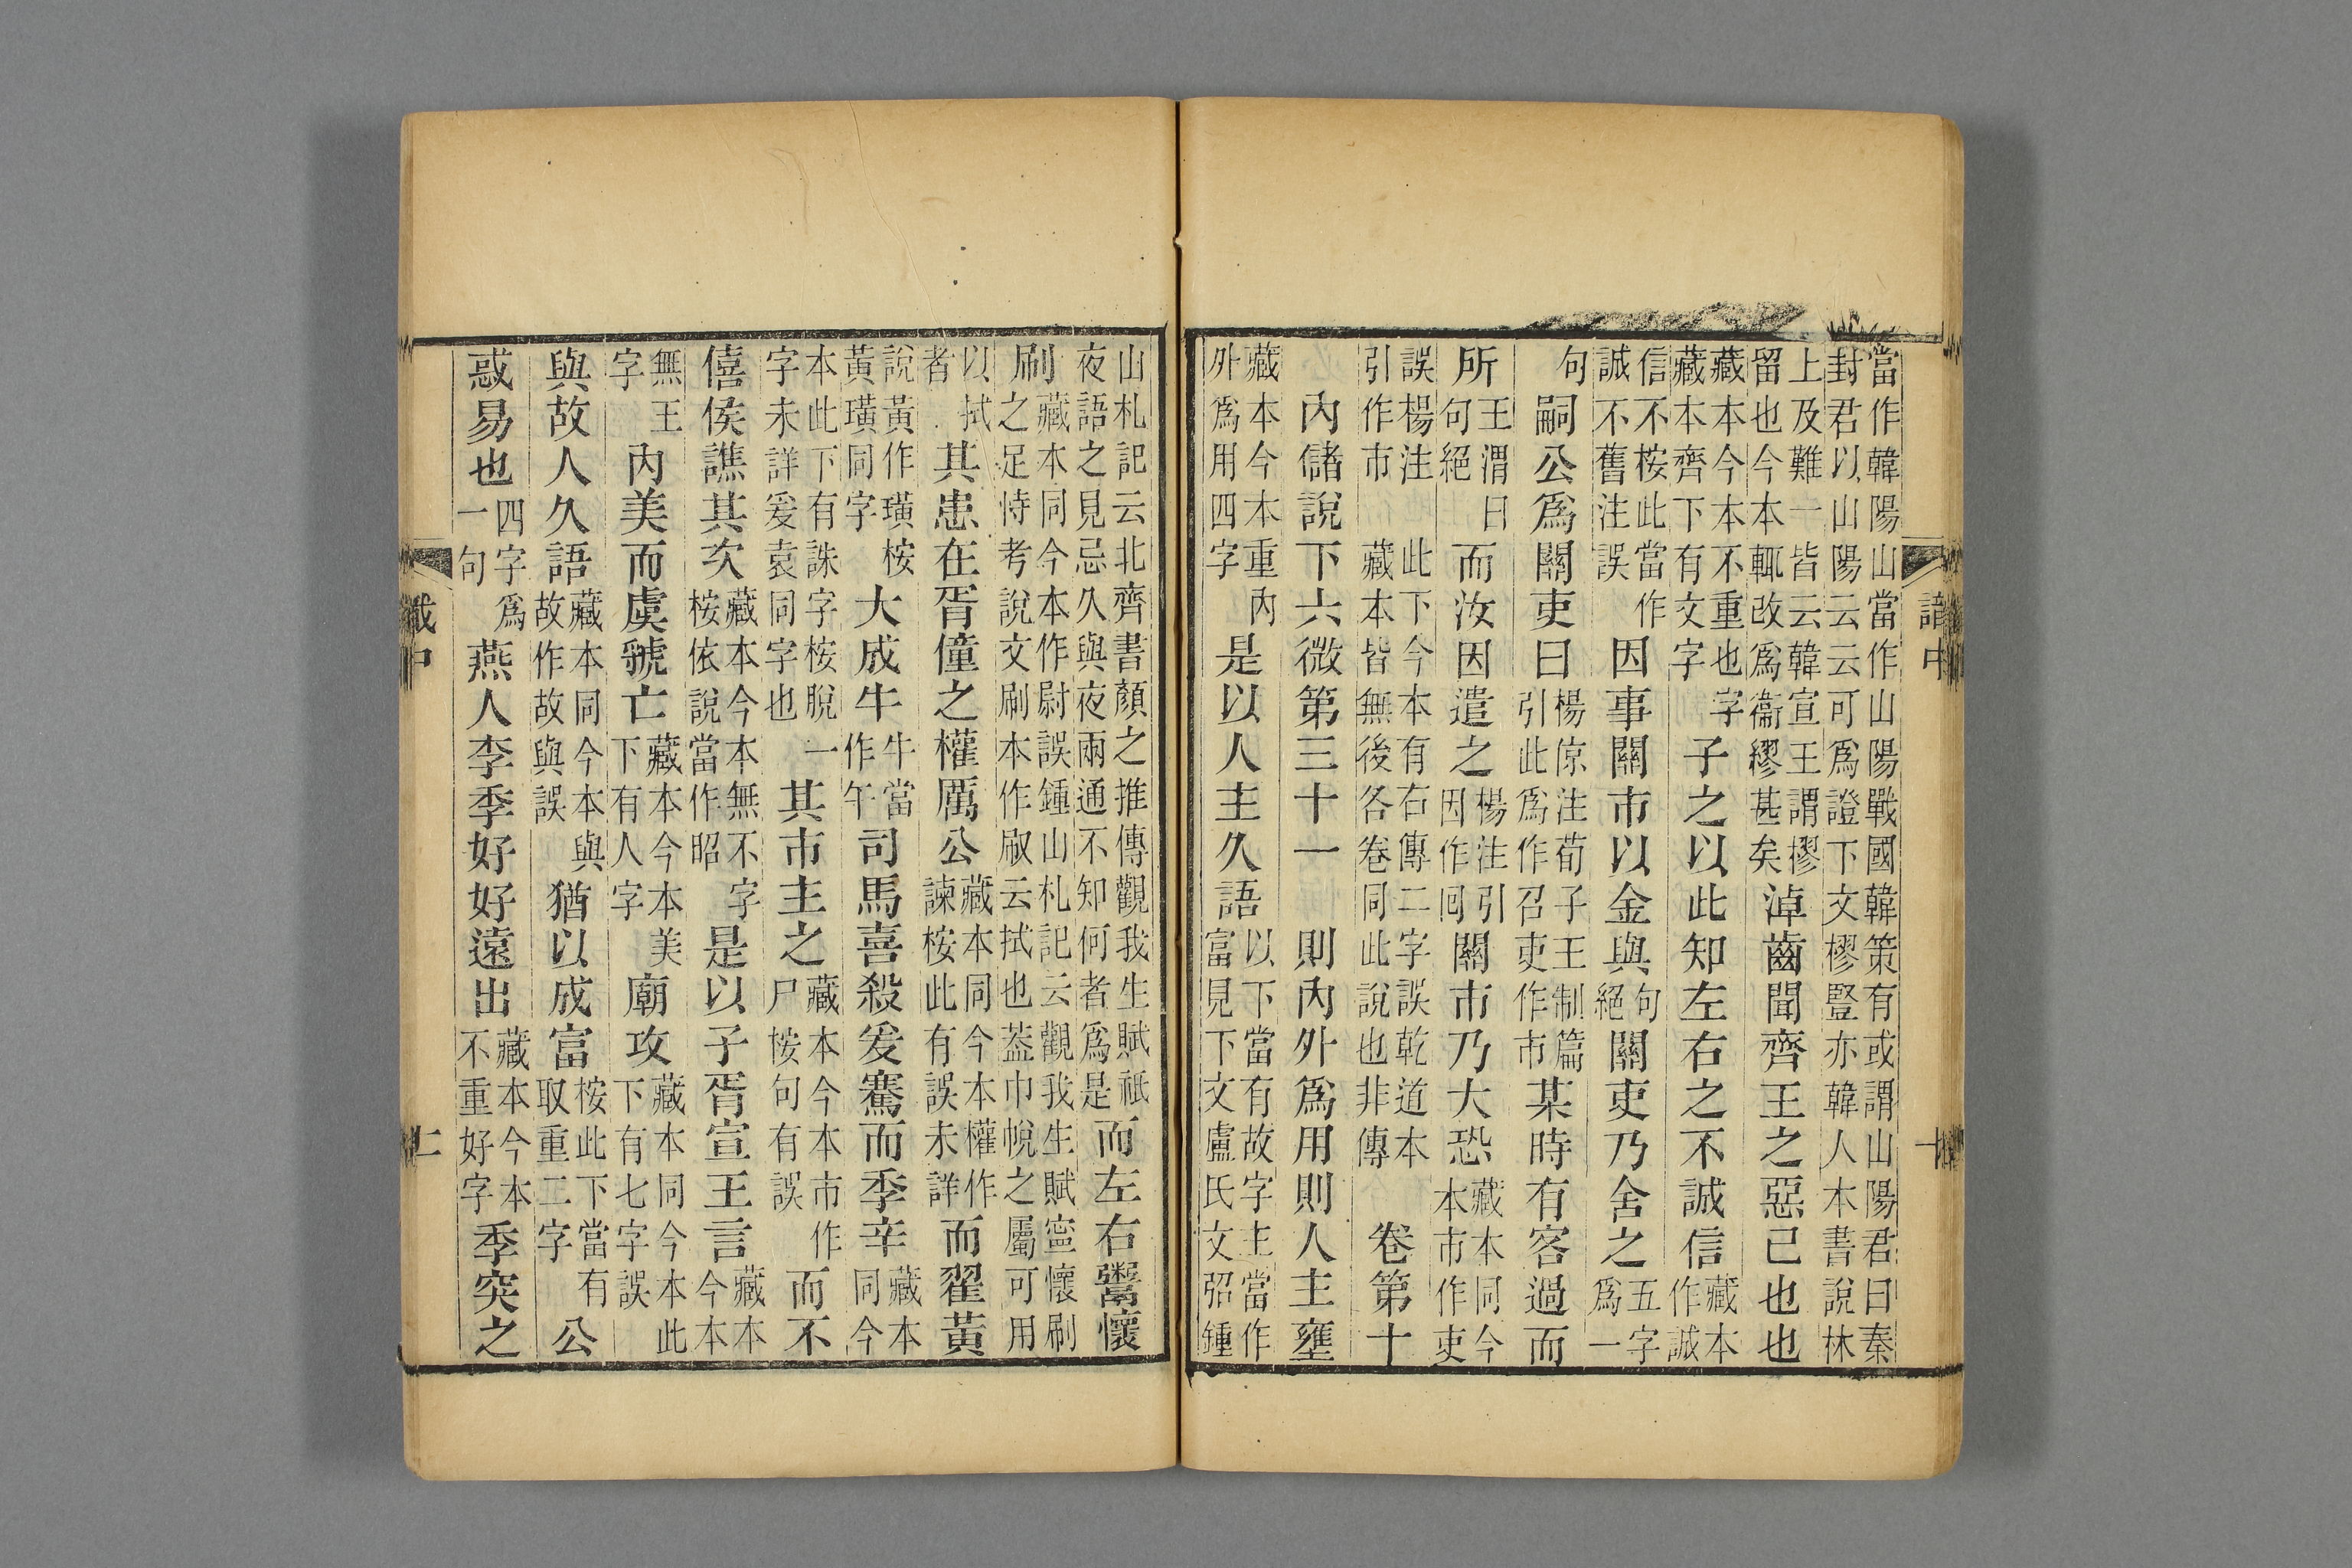 當作韓陽山當作山陽戰國韓策有或謂山陽君曰秦
封君以山陽云云可爲證下文樛豎亦韓人本書說林
上及難一皆云韓宣王謂樛
留也今本輒改爲衞繆甚矣
淖齒聞齊王之惡己也也
藏本今本不重也字
藏本齊下有文字
子之以此知左右之不誠信
藏本
作誠
信不桉此當作
誠不舊注誤
因事關市以金與
句
絕
關吏乃舍之
五字
爲一
句
嗣公爲關吏曰
楊倞注荀子王制篇
引此爲作召吏作市
某時有客過而
所
王渭曰
句絕
而汝因遣之
楊注引
因作回
關市乃大恐
藏本同今
本市作吏
誤楊注
引作市
此下今本有右傳二字誤乾道本
藏本皆無後各卷同此說也非傳
卷第十
內儲說下六微第三十一
則內外爲用則人主壅
藏本今本重內
外爲用四字
是以人主久語
以下當有故字主當作
富見下文盧氏文弨鍾
山札記云北齊書顏之推傳觀我生賦祇
夜語之見忌久與夜兩通不知何者爲是
而左右鬻懷
刷
藏本同今本作尉誤鍾山札記云觀我生賦寍懷刷
之足恃考說文刷本作㕞云拭也葢巾帨之屬可用
以拭
者
其患在胥僮之權厲公
藏本同今本權作
諫桉此有誤未詳
而翟黃
說黃作璜桉
黃璜同字
大成牛
牛當
作午
司馬喜殺爰騫而季辛
藏本
同今
本此下有誅字桉脫一
字未詳爰袁同字也
其市主之
藏本今本市作
尸桉句有誤
而不
僖侯譙其次
藏本今本無不字
桉依說當作昭
是以子胥宣王言
藏本
今本
無王
字
內美而虞虢亡
藏本今本美
下有人字
廟攻
藏本同今本此
下有七字誤
與故人久語
藏本同今本與
故作故與誤
猶以成富
桉此下當有
取重二字
公
惑易也
四字爲
一句
燕人李季好好遠出
藏本今本
不重好字
季突之